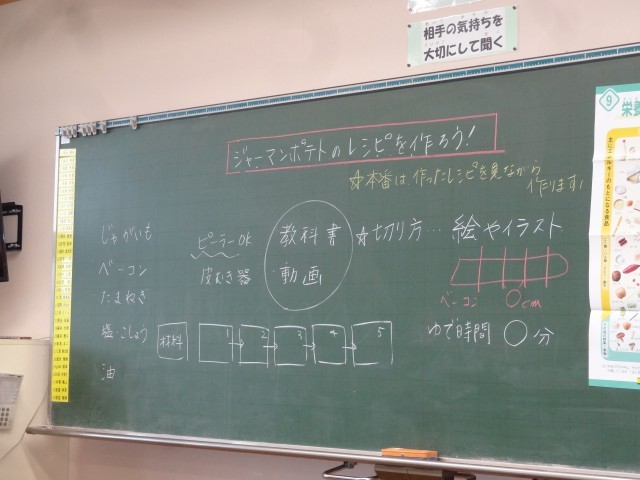 相手の気持ちを
大切にして聞く
ジャーマンポテトのレシピを作ろう!
☆本番は、作ったレシピを見ながら
作ります!
じゃがいも
ベーコン
たまねぎ
塩・こしょう
油
ピーラーOK
皮むき器
教科書
動画
☆切り方…絵やイラスト
ベーコン ○cm
ゆで時間 ○分
材料
1
2
3
4
5
9
栄養
主にエネルギーのもとになる食品